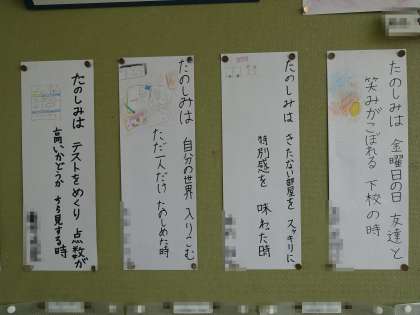 たのしみは 金曜日の日 友達と
笑みがこぼれる 下校の時
たのしみは きたない部屋を スッキリに
特別感を 味わった時
たのしみは 自分の世界 入りこむ
ただ一人だけ たのしめた時
たのしみは テストをめくり 点数が
高いかどうか ちら見する時